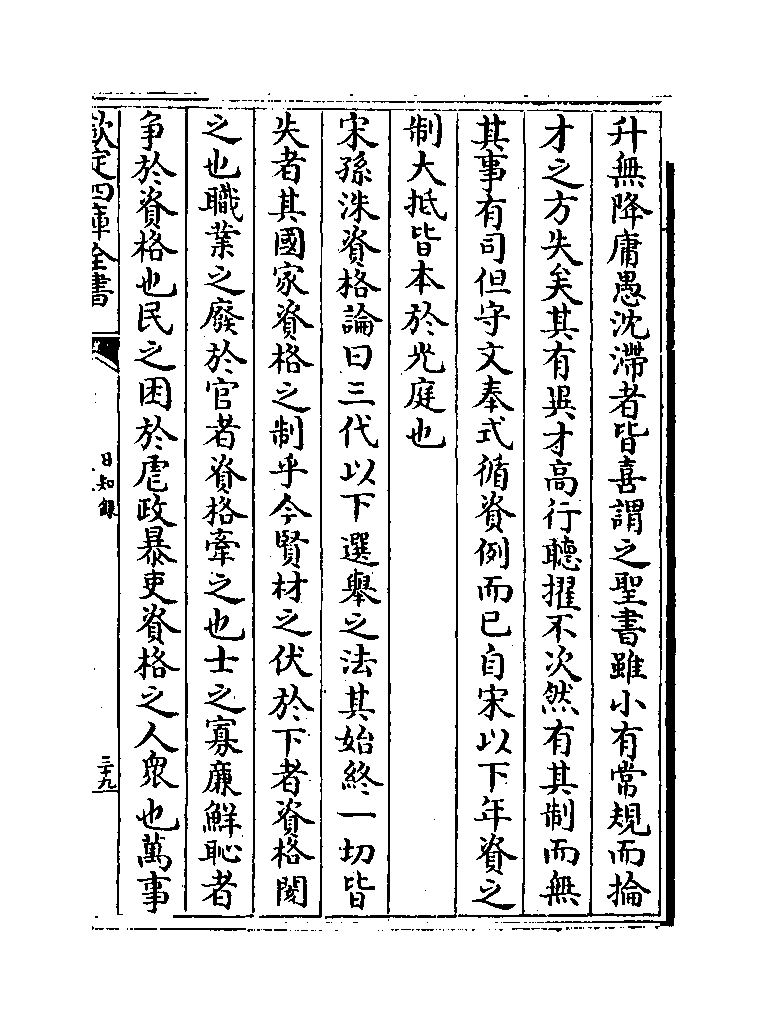 升無降庸愚沈滯者皆喜謂之聖書雖小有常規而掄
才之方失矣其有異才高行聽擢不次然有其制而無
其事有司但守文奉式循資例而已自宋以下年資之
制大抵皆本於光庭也
宋孫洙資格論曰三代以下選舉之法其始終一切皆
失者其國家資格之制乎今賢材之伏於下者資格閡
之也職業之廢於官者資格牽之也士之寡廉鮮恥者
争於資格也民之困於虐政暴吏資格之人衆也萬事
欽定四庫全書
日知錄
三十九